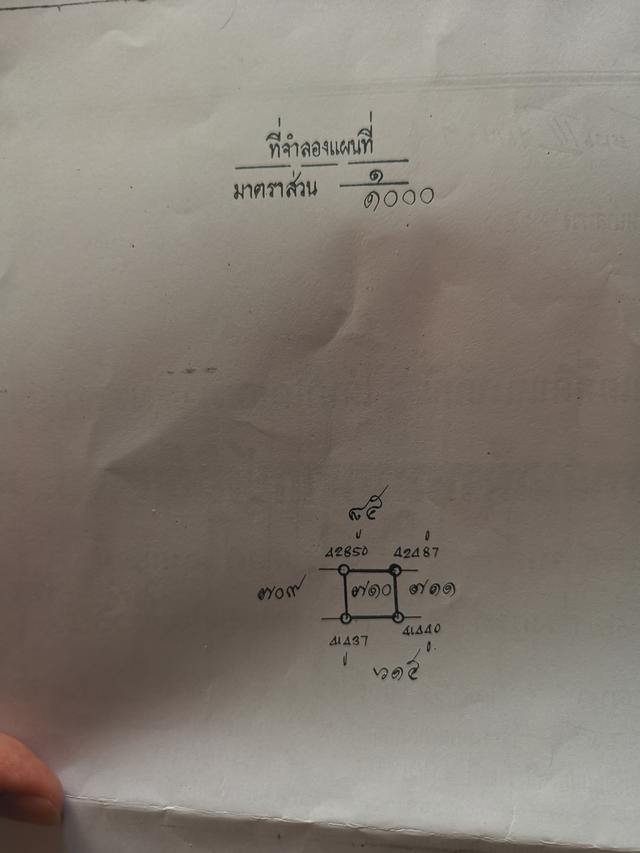 ที่จำลองแผนที่
มาตราส่วน ๑
๑๐๐๐
๘๕
42850 42487
๗๐๙ ๗๑๐ ๗๑๑
41437 41440
๖๑๕